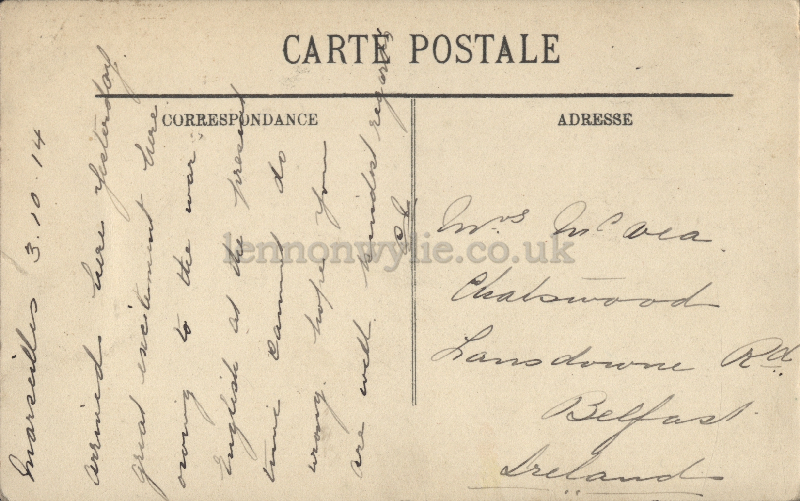 CARTE POSTALE
CORRESPONDANCE
ADRESSE
Marseilles 3.10.14
arrived here yesterday
great excitement here
owing to the war
English at the present
time cannot do
wrong. hope you
are well kindest regards
Mrs McVea
Chatswood
Lansdowne Rd
Belfast
Ireland
lennonwylie.co.uk